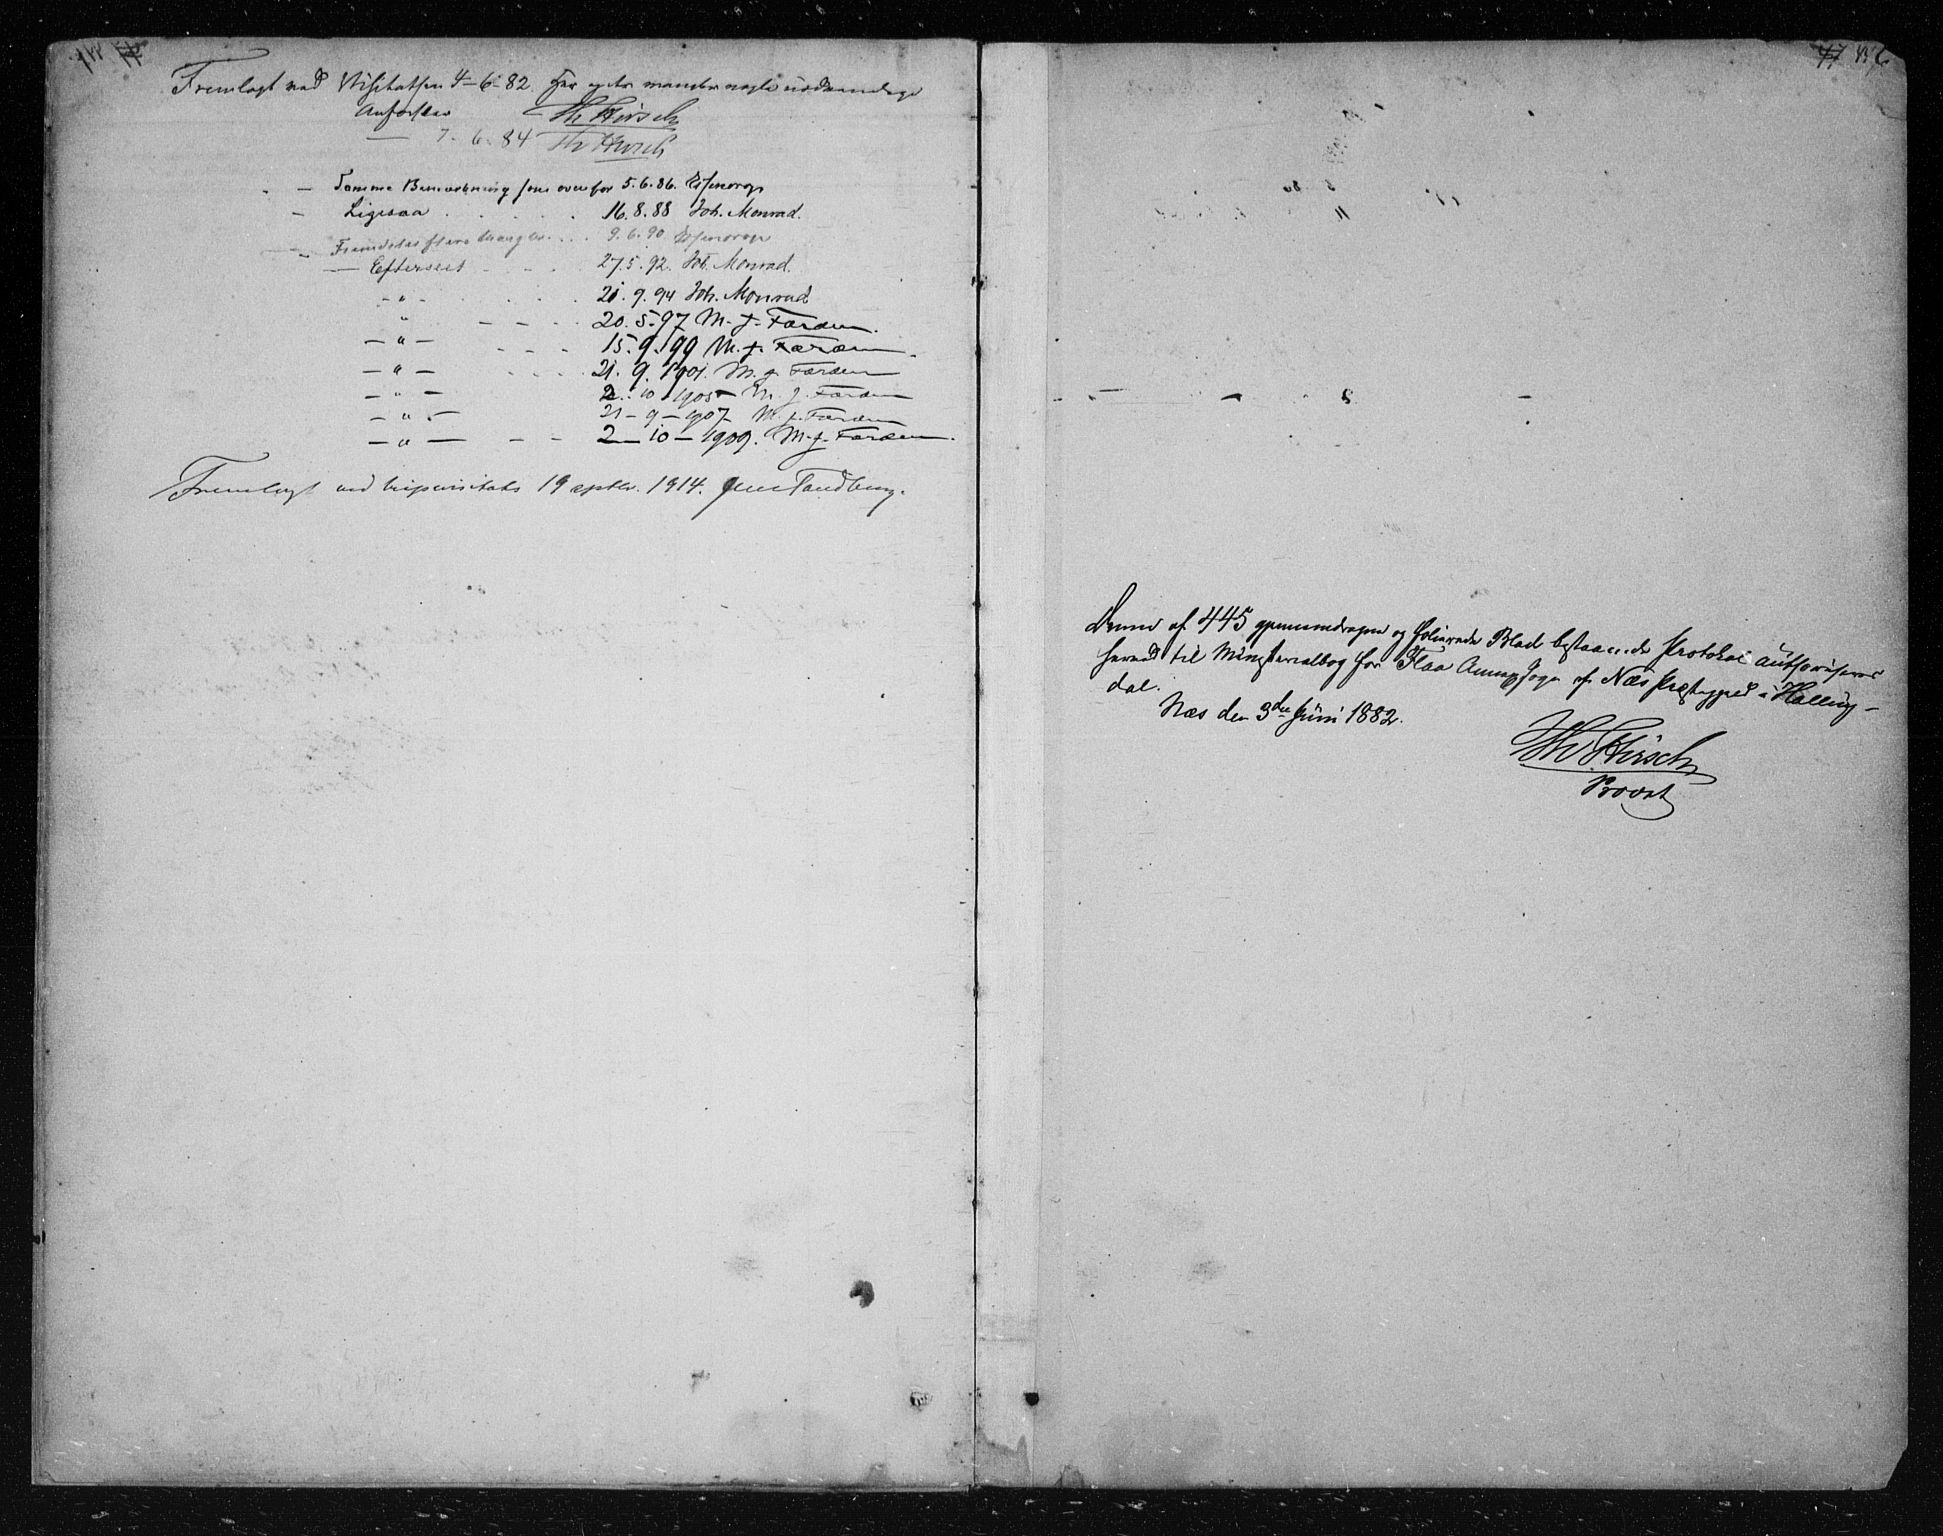 Fremlagt ved Visitatsen 4-6-82. Her og der mangler nogle nødvendige
Anførsler Th Hirsch
— 7. 6. 84 Th Hirsch
— Samme Bemærkning som ovenfor 5.6.86.
— Ligesaa . . . . . 16.8.88 Joh. Monrad.
— Fremdeles flere Mangler . . . 9.6.90
— Efterseet . . . . 27.5.92. Joh. Monrad.
- " - . . . . 21.9.94 Joh. Monrad
" - - - 20.5.97 M. J. Færden.
- " - - - - 15.9.199 M. J. Færden.
- " - . . . . 21.9.1901. M. J. Færden
- " - 2.10.1905 - M. J. Færden
- " - 21-9-1907 M. J. Færden
- " - - - 2-10-1909. M. J. Færden.
Fremlagt ved bispevisitats 19 septbr. 1914. Jens Tandberg.
Denne af 445 gjennemdragne og folierede Blad bestaaende Protokol authoriseres
herved til Ministerialbog for Flaa Annexsogn af Næs Præstegjeld i Halling-
dal.
Næs den 3die Juni 1882.
Th Hirsch
Provst